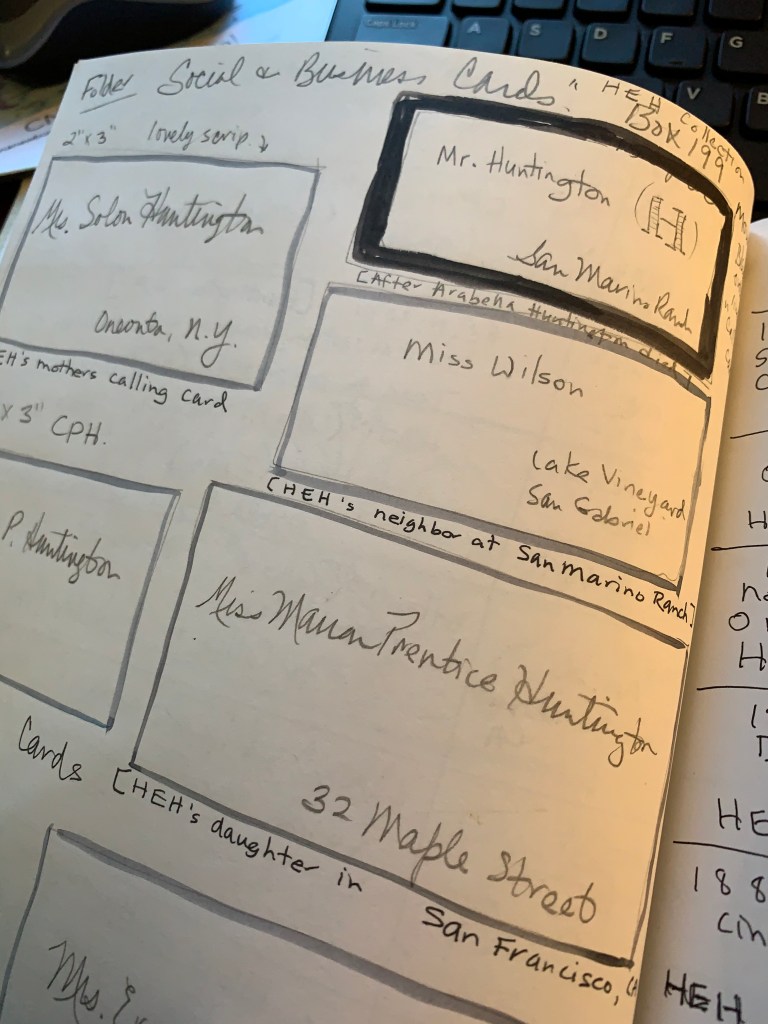 Folder Social & Business Cards. "HEH Collection
Box 199
2" x 3" lovely scrip.
Ms. Solon Huntington
Oneonta, N.Y.
EH's mothers calling card
Mr. Huntington (H)
San Marino Ranch
[After Arabella Huntington died]
Miss Wilson
Lake Vineyard
San Gabriel
[HEH's neighbor at San Marino Ranch]
x 3" CPH.
P. Huntington
Cards
Miss Marion Prentice Huntington
32 Maple Street
[HEH's daughter in San Francisco,
Mrs.
H
HE
188
cin
HEH
Caps Lock
A
S
D
F
G
V
B